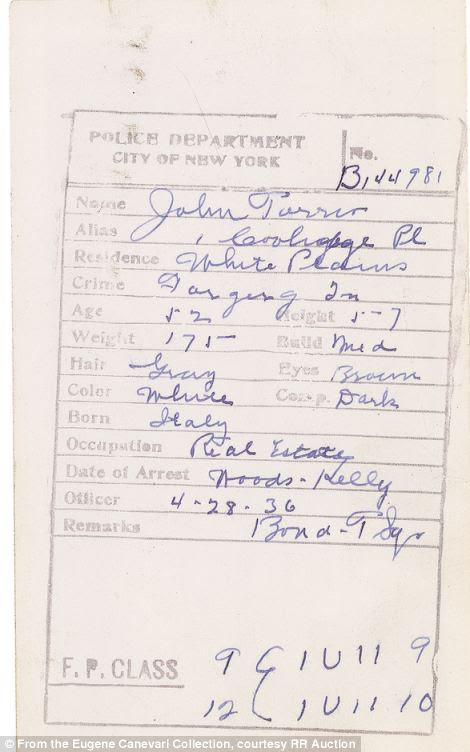 POLICE DEPARTMENT
CITY OF NEW YORK
No.
B,44981
Name John Torrio
Alias
1 Coolidge Pl
Residence White Plains
Crime In
Age 52 Height 5-7
Weight 175 Build Med
Hair Gray Eyes Brown
Color White Comp. Dark
Born Italy
Occupation Real Estate
Date of Arrest Woods-Kelly
Officer 4-28-36
Remarks Bond-T Sqr
F. P. CLASS 9 1 U 11 9
12 1 U 11 10
© From the Eugene Canevari Collection, courtesy RR Auction